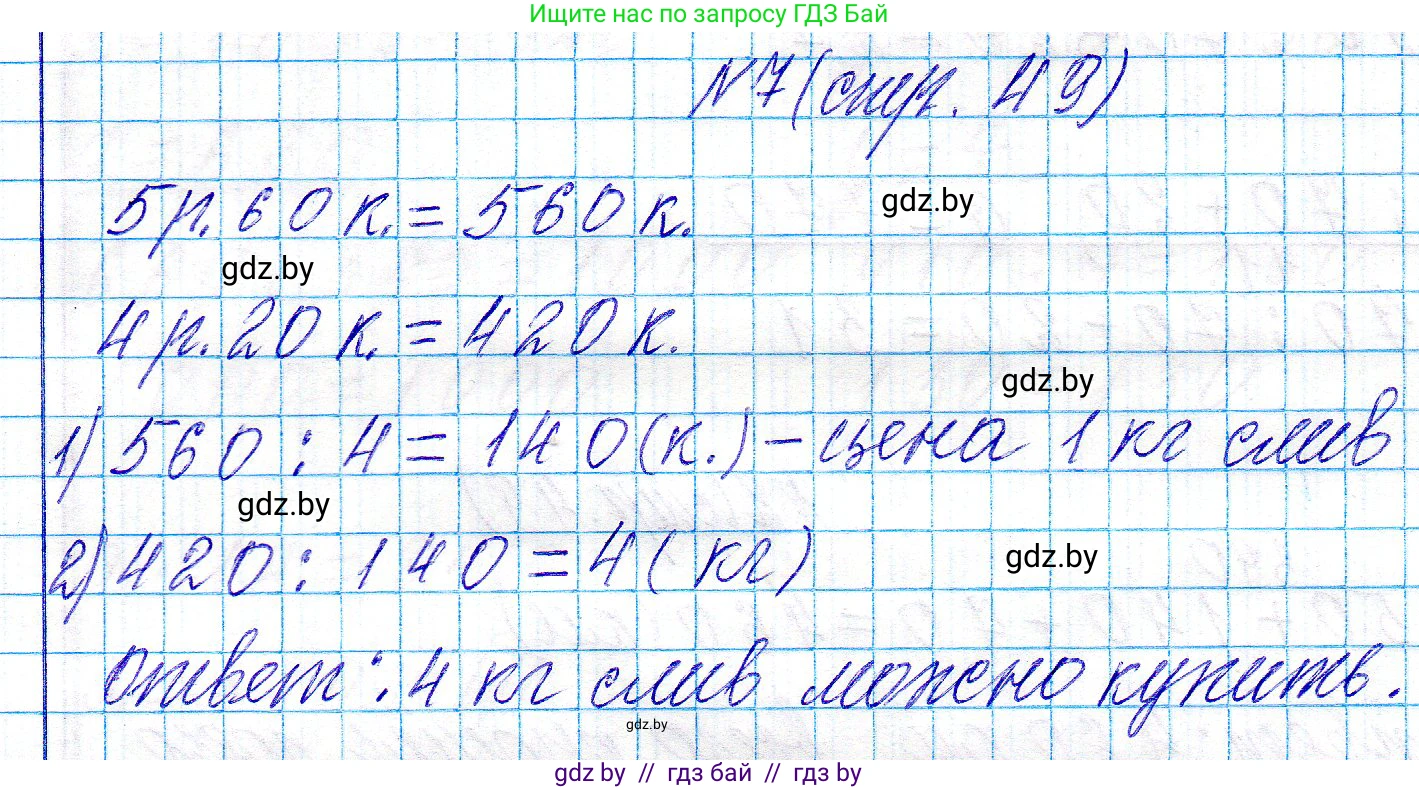 Ищите нас по запросу ГДЗ Бай
№7 (стр. 49)
5 р. 60 к. = 560 к.
gdz.by
gdz.by
4 р. 20 к. = 420 к.
gdz.by
1) 560 : 4 = 140 (к.) – цена 1 кг слив
gdz.by
2) 420 : 140 = 4 (кг)
gdz.by
ответ: 4 кг слив можно купить.
gdz.by
gdz by // гдз бай // гдз by